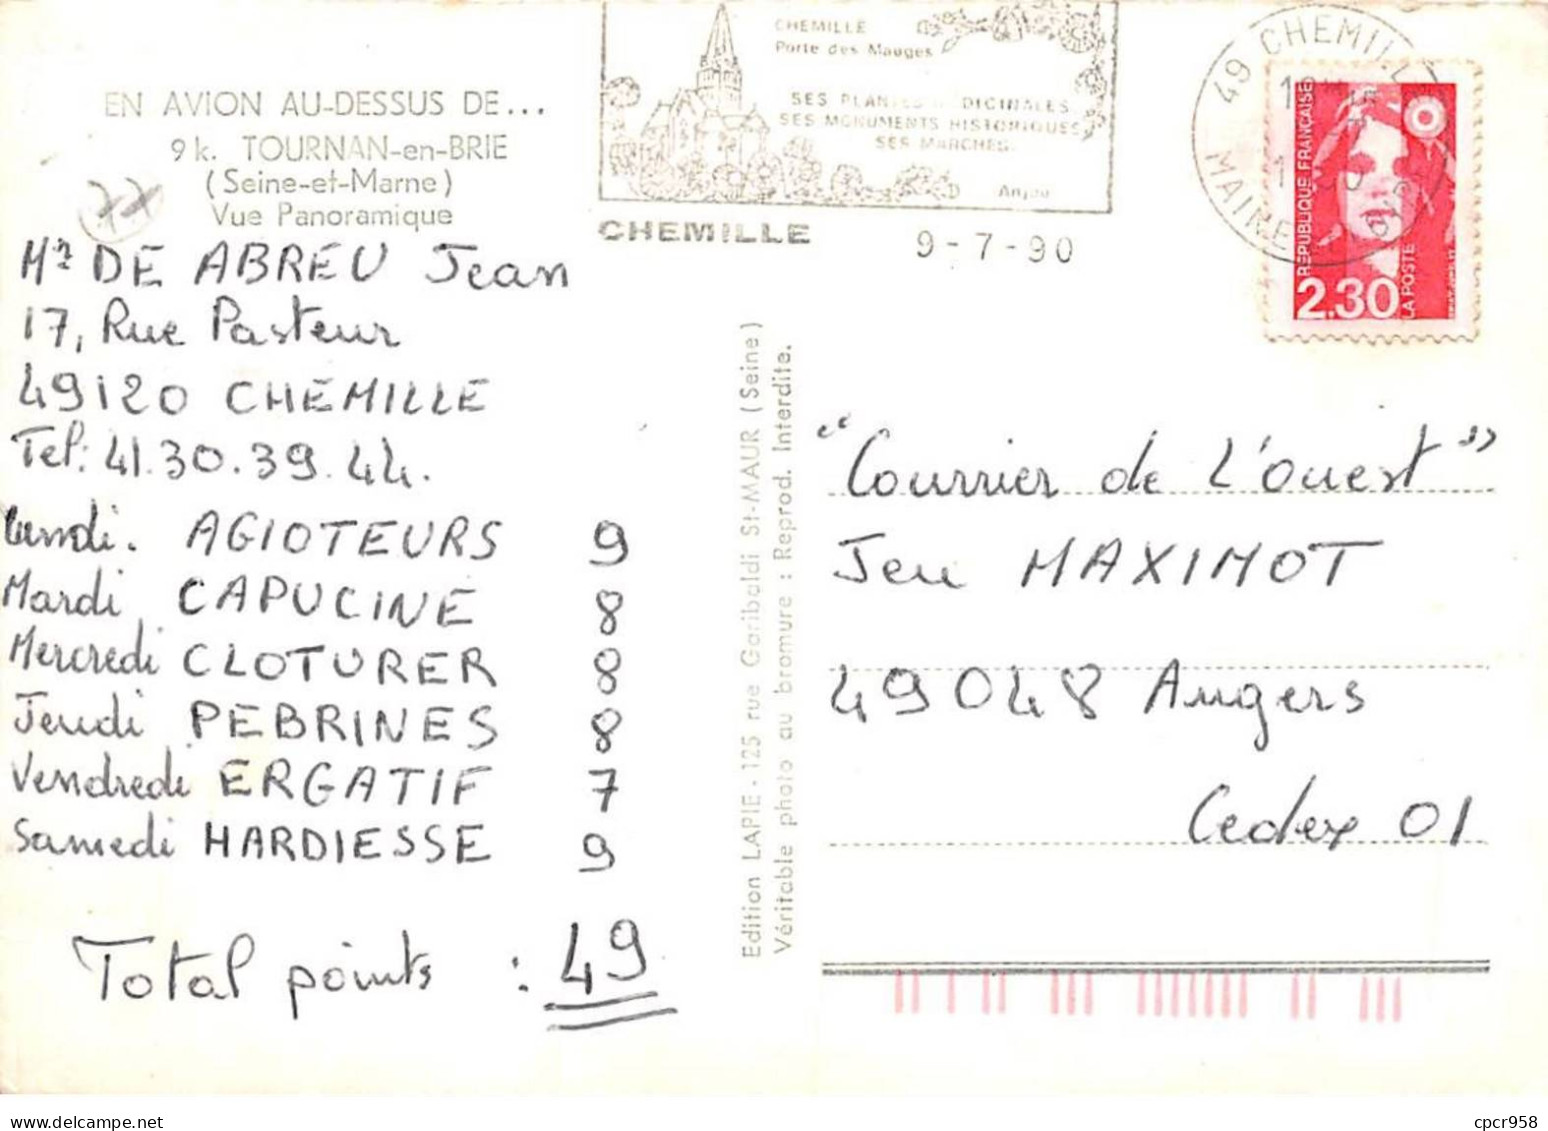 EN AVION AU-DESSUS DE...
9 k. TOURNAN-en-BRIE
(Seine-et-Marne)
Vue Panoramique
77
Mr DE ABREU Jean
17, Rue Pasteur
49120 CHEMILLE
Tel: 41.30.39.44.
Lundi. AGIOTEURS 9
Mardi CAPUCINE 8
Mercredi CLOTURER 8
Jeudi PEBRINES 8
Vendredi ERGATIF 7
Samedi HARDIESSE 9
Total points : 49
Edition LAPIE - 125 rue Garibaldi St-MAUR (Seine)
Véritable photo au bromure : Reprod. Interdite.
CHEMILLE
Porte des Mauges
SES PLANTES MEDICINALES
SES MONUMENTS HISTORIQUES
SES MARCHES.
Anjou
CHEMILLE
9-7-90
49 CHEMILL
MAINE
REPUBLIQUE FRANÇAISE
2.30
LA POSTE
"Courrier de L'ouest"
Jeu MAXIMOT
49048 Angers
Cedex 01
cpcr958